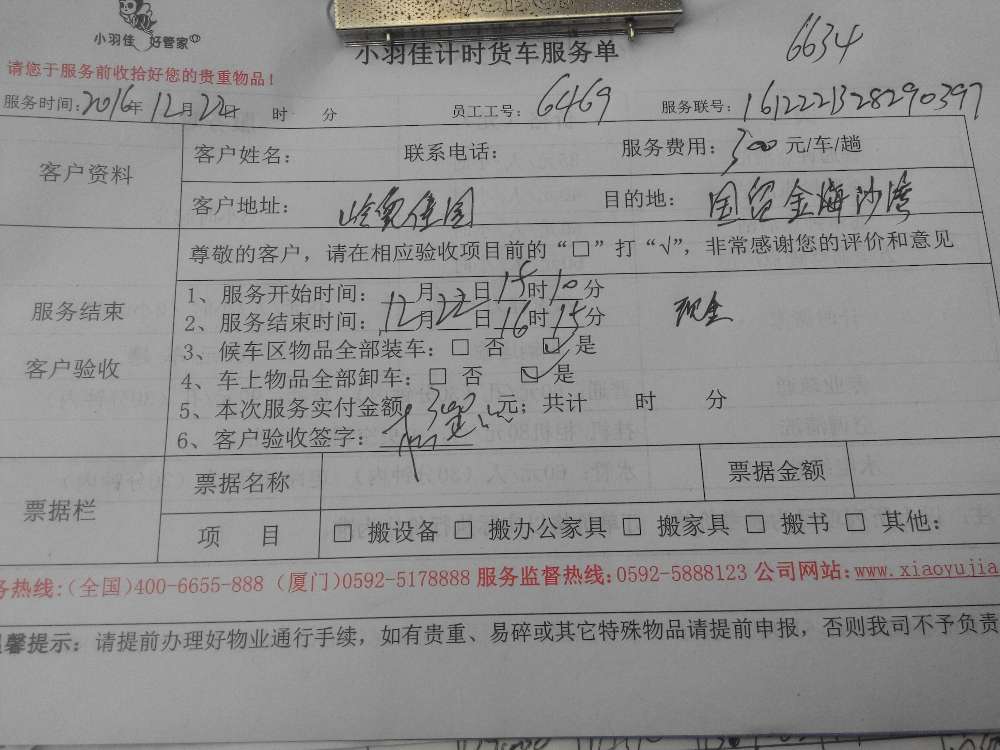 小羽佳 好管家
小羽佳计时货车服务单
6634
请您于服务前收拾好您的贵重物品！
服务时间：2016年12月22日 时 分 员工工号：6469 服务联号：1612221328290397
客户资料
客户姓名： 联系电话： 服务费用：300元/车/趟
客户地址： 目的地：国贸金海沙湾
尊敬的客户，请在相应验收项目前的“□”打“√”，非常感谢您的评价和意见
服务结束
客户验收
1、服务开始时间：12月22日15时10分
2、服务结束时间：12月22日16时15分
现金
3、候车区物品全部装车：□ 否 ☑ 是
4、车上物品全部卸车：□ 否 ☑ 是
5、本次服务实付金额 元；共计 时 分
6、客户验收签字：
票据栏
票据名称 票据金额
项 目 □ 搬设备 □ 搬办公家具 □ 搬家具 □ 搬书 □ 其他：
务热线：(全国)400-6655-888 (厦门)0592-5178888 服务监督热线：0592-5888123 公司网站：www.xiaoyujia
温馨提示：请提前办理好物业通行手续，如有贵重、易碎或其它特殊物品请提前申报，否则我司不予负责